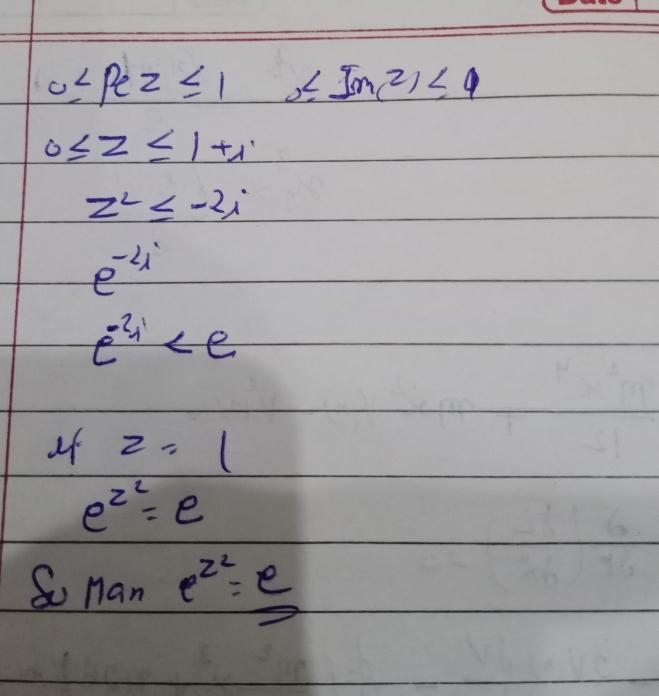 0 ≤ Re z ≤ 1 0 ≤ Im(z) ≤ 1
0 ≤ z ≤ 1+i
z² ≤ -2i
e^{-2i}
e^{-2i} < e
if z = 1
e^{z²} = e
So Man e^{z²} = e